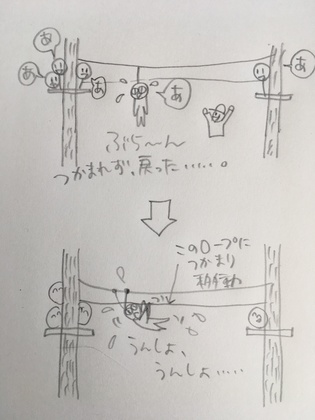 あ
あ
あ
あ
あ
ぶら～ん
つかまれず、戻った……。
このロープに
つかまり
うんしょ、
うんしょ……